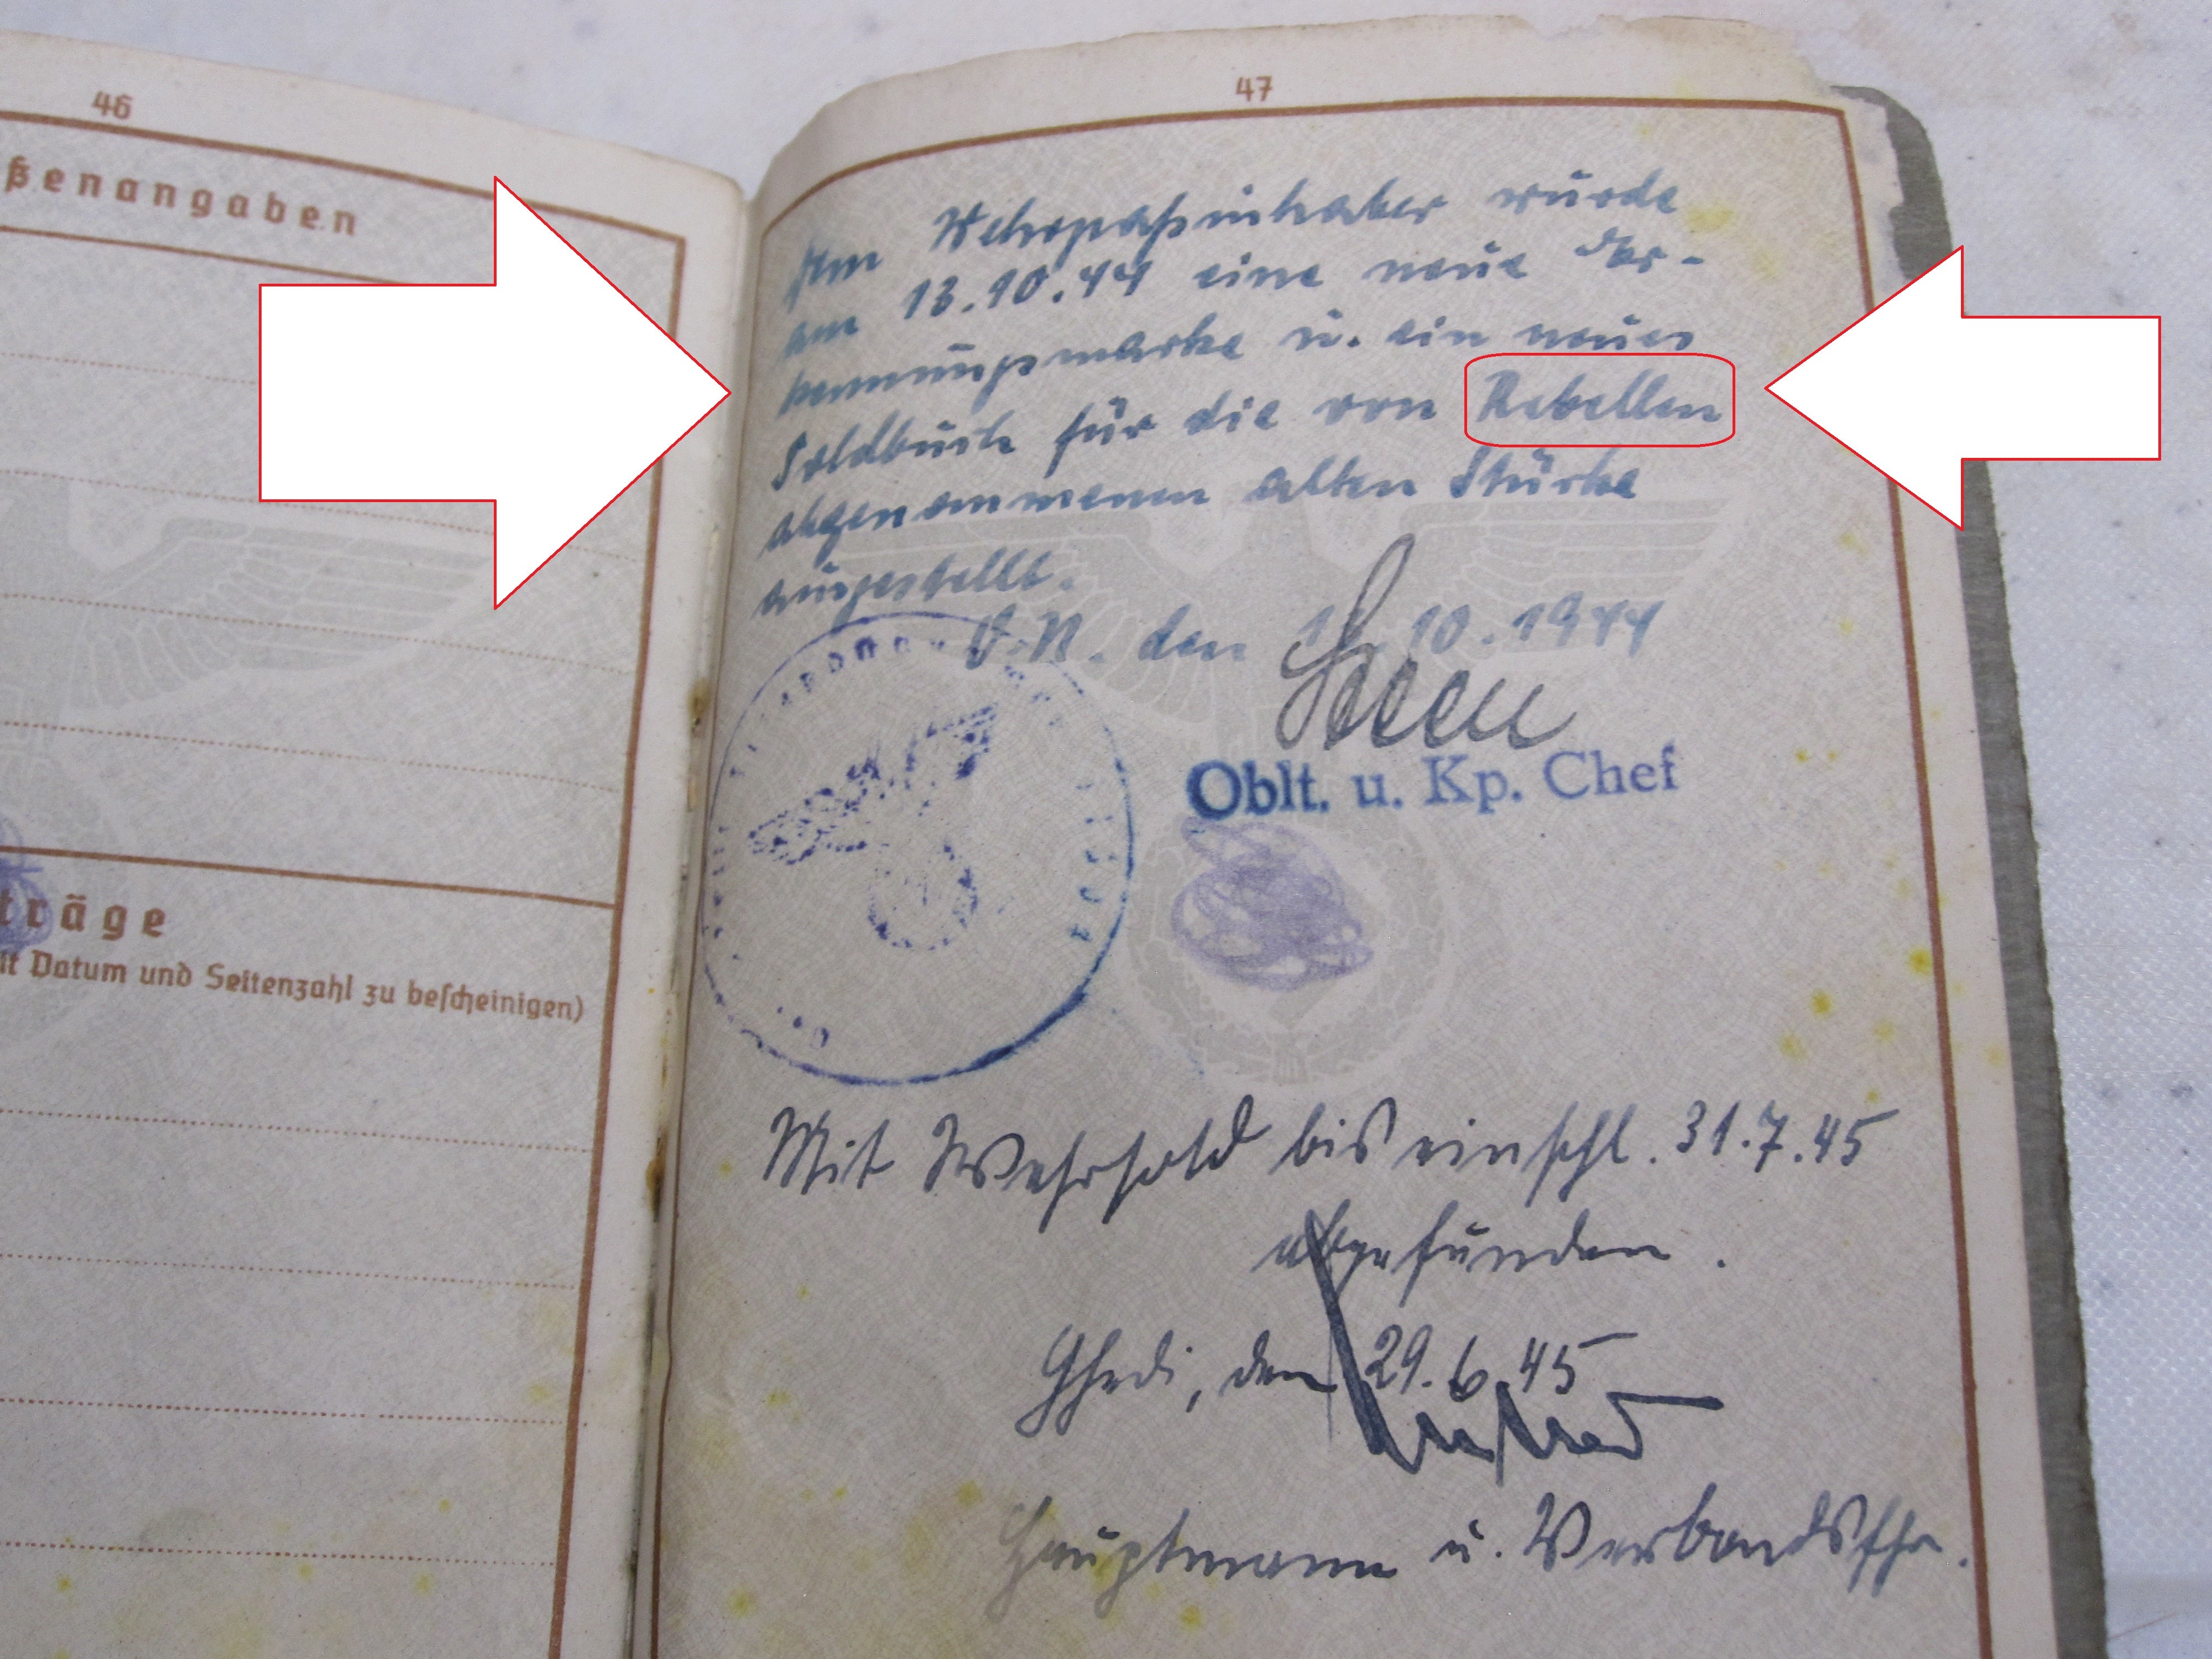 46
ßenangaben
träge
it Datum und Seitenzahl zu bescheinigen)
47
Dem Wehrpaßinhaber wurde
am 12.10.44 eine neue Er-
kennungsmarke u. ein neues
Soldbuch für die von Rebellen
abgenommenen alten Stücke
ausgestellt.
O.U. den 10.1944
Oblt. u. Kp. Chef
Mit Wehrsold bis einschl. 31.7.45
abgefunden.
Ghedi, den 29.6.45
Hauptmann u. Verbandsfhr.